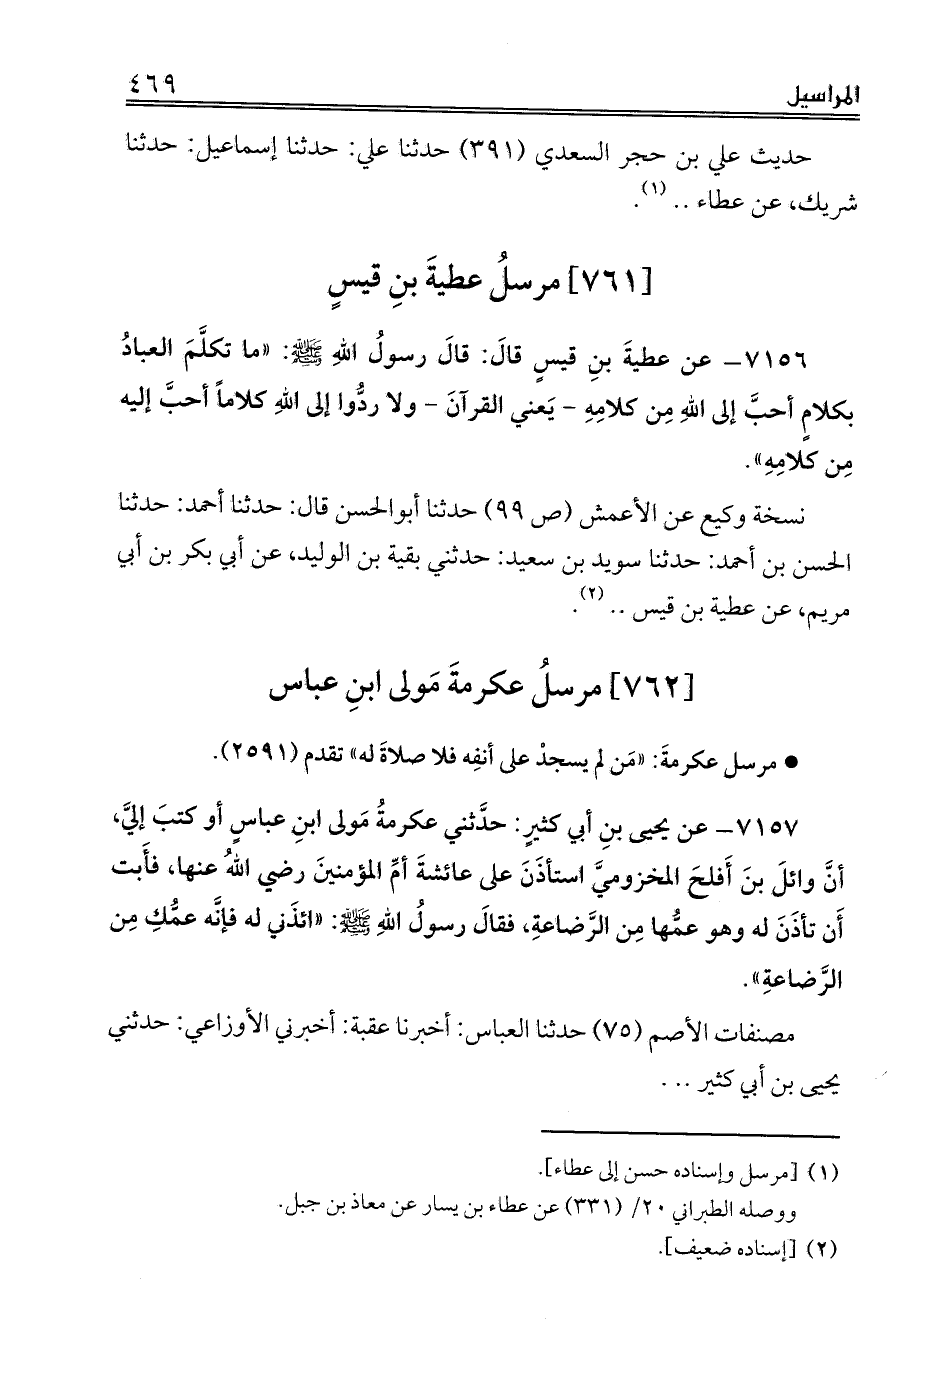 المراسيل ٤٦٩
حديث علي بن حجر السعدي (٣٩١) حدثنا علي: حدثنا إسماعيل: حدثنا
شريك، عن عطاء .. (١).
[٧٦١] مرسلُ عطيةَ بنِ قيسٍ
٧١٥٦ـ عن عطيةَ بنِ قيسٍ قالَ: قالَ رسولُ اللهِ ﷺ: «ما تكلَّمَ العبادُ
بكلامٍ أحبَّ إلى اللهِ مِن كلامِهِ - يَعني القرآنَ - ولا ردُّوا إلى اللهِ كلاماً أحبَّ إليه
مِن كلامِهِ».
نسخة وكيع عن الأعمش (ص ٩٩) حدثنا أبوالحسن قال: حدثنا أحمد: حدثنا
الحسن بن أحمد: حدثنا سويد بن سعيد: حدثني بقية بن الوليد، عن أبي بكر بن أبي
مريم، عن عطية بن قيس .. (٢).
[٧٦٢] مرسلُ عكرمةَ مَولى ابنِ عباس
● مرسل عكرمةَ: «مَن لم يسجدْ على أنفِه فلا صلاةَ له» تقدم (٢٥٩١).
٧١٥٧ـ عن يحيى بنِ أبي كثيرٍ: حدَّثني عكرمةُ مَولى ابنِ عباسٍ أو كتبَ إليَّ،
أنَّ وائلَ بنَ أَفلحَ المخزوميَّ استأذَنَ على عائشةَ أمِّ المؤمنينَ رضي اللهُ عنها، فأَبت
أَن تأذَنَ له وهو عمُّها مِن الرَّضاعةِ، فقالَ رسولُ اللهِ ﷺ: «ائذَني له فإنَّه عمُّكِ مِن
الرَّضاعةِ».
مصنفات الأصم (٧٥) حدثنا العباس: أخبرنا عقبة: أخبرني الأوزاعي: حدثني
يحيى بن أبي كثير ...
(١) [مرسل وإسناده حسن إلى عطاء].
ووصله الطبراني ٢٠/ (٣٣١) عن عطاء بن يسار عن معاذ بن جبل.
(٢) [إسناده ضعيف].